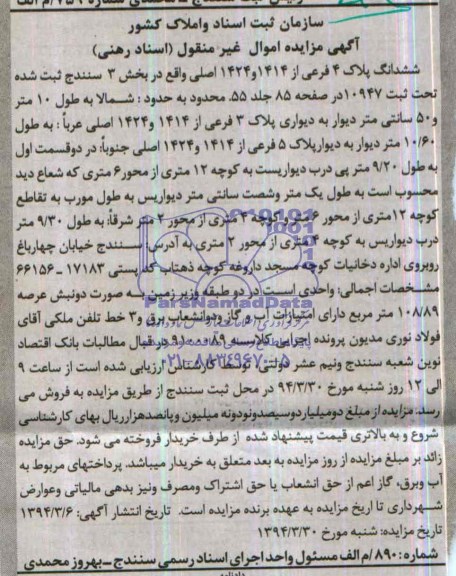 سازمان ثبت اسناد واملاک کشور
آگهی مزایده اموال غیر منقول (اسناد رهنی)
ششدانگ پلاک ۴ فرعی از ۱۴۱۴و۱۴۲۴ اصلی واقع در بخش ۳ سنندج ثبت شده
تحت ثبت ۱۰۹۴۷در صفحه ۸۵ جلد ۵۵. محدود به حدود : شمـالا به طول ۱۰ متر
و۵۰ سانتی متر دیوار به دیواری پلاک ۳ فرعی از ۱۴۱۴ و۱۴۲۴ اصلی غرباً : به طول
۱۰/۶۰ متر دیوار به دیوارپلاک ۵ فرعی از ۱۴۱۴ و۱۴۲۴ اصلی جنوباً: در دوقسمت اول
به طول ۹/۲۰ متر پی درب دیواریست به کوچه ۱۲ متری از محور۶ متری که شعاع دید
محسوب است به طول یک متر وشصت سانتی متر دیواریس به طول مورب به تقاطع
کوچه ۱۲متری از محور ۶ متر و کوچه متری از محور ۲ متر شرقاً: به طول ۹/۳۰ متر
درب دیواریس به کوچه متری از محور ۲ متری به آدرس: سـنندج خیابان چهارباغ
روبروی اداره دخانیات کوچه مسجد داروغه کوچه ذهتاب کد پستی ۱۷۱۸۳ ـ ۶۶۱۵۶
مشخصات اجمالی: واحدی اسـت در دو طبقه وزیر زمین به صورت دونبش عرصه
۱۰۸/۸۹ متر مربع دارای امتیازات آب و گاز ودوانشعاب برق و۳ خط تلفن ملکی آقای
فولاد نوری مدیون پرونده اجرایی کلاسه در قبال مطالبات بانک اقتصاد
نوین شعبه سنندج ونیم عشر دولتی، توسط کارشناس ارزیابی شده است از ساعت ۹
الی ۱۲ روز شنبه مورخ ۹۴/۳/۳۰ در محل ثبت سنندج از طریق مزایده به فروش می
رسد. مزایده از مبلغ دومیلیاردوسیصدونودونه میلیون وپانصدهزارریال بهای کارشناسی
شروع و به بالاتری قیمت پیشنهاد شده از طرف خریدار فروخته می شود. حق مزایده
زائد بر مبلغ مزایده از روز مزایده به بعد متعلق به خریدار میباشد. پرداختهای مربوط به
آب وبرق، گاز اعم از حق انشعاب یا حق اشتراک ومصرف ونیز بدهی مالیاتی وعوارض
شـهرداری تا اریخ مزایده به عهده برنده مزایده است. تاریخ انتشار آگهی: ۱۳۹۴/۳/۶
تاریخ مزایده: شنبه مورخ ۱۳۹۴/۳/۳۰
شماره: ۸۹۰/م الف مسئول واحد اجرای اسناد رسمی سنندج ـ بهروز محمدی
ParsNamadData